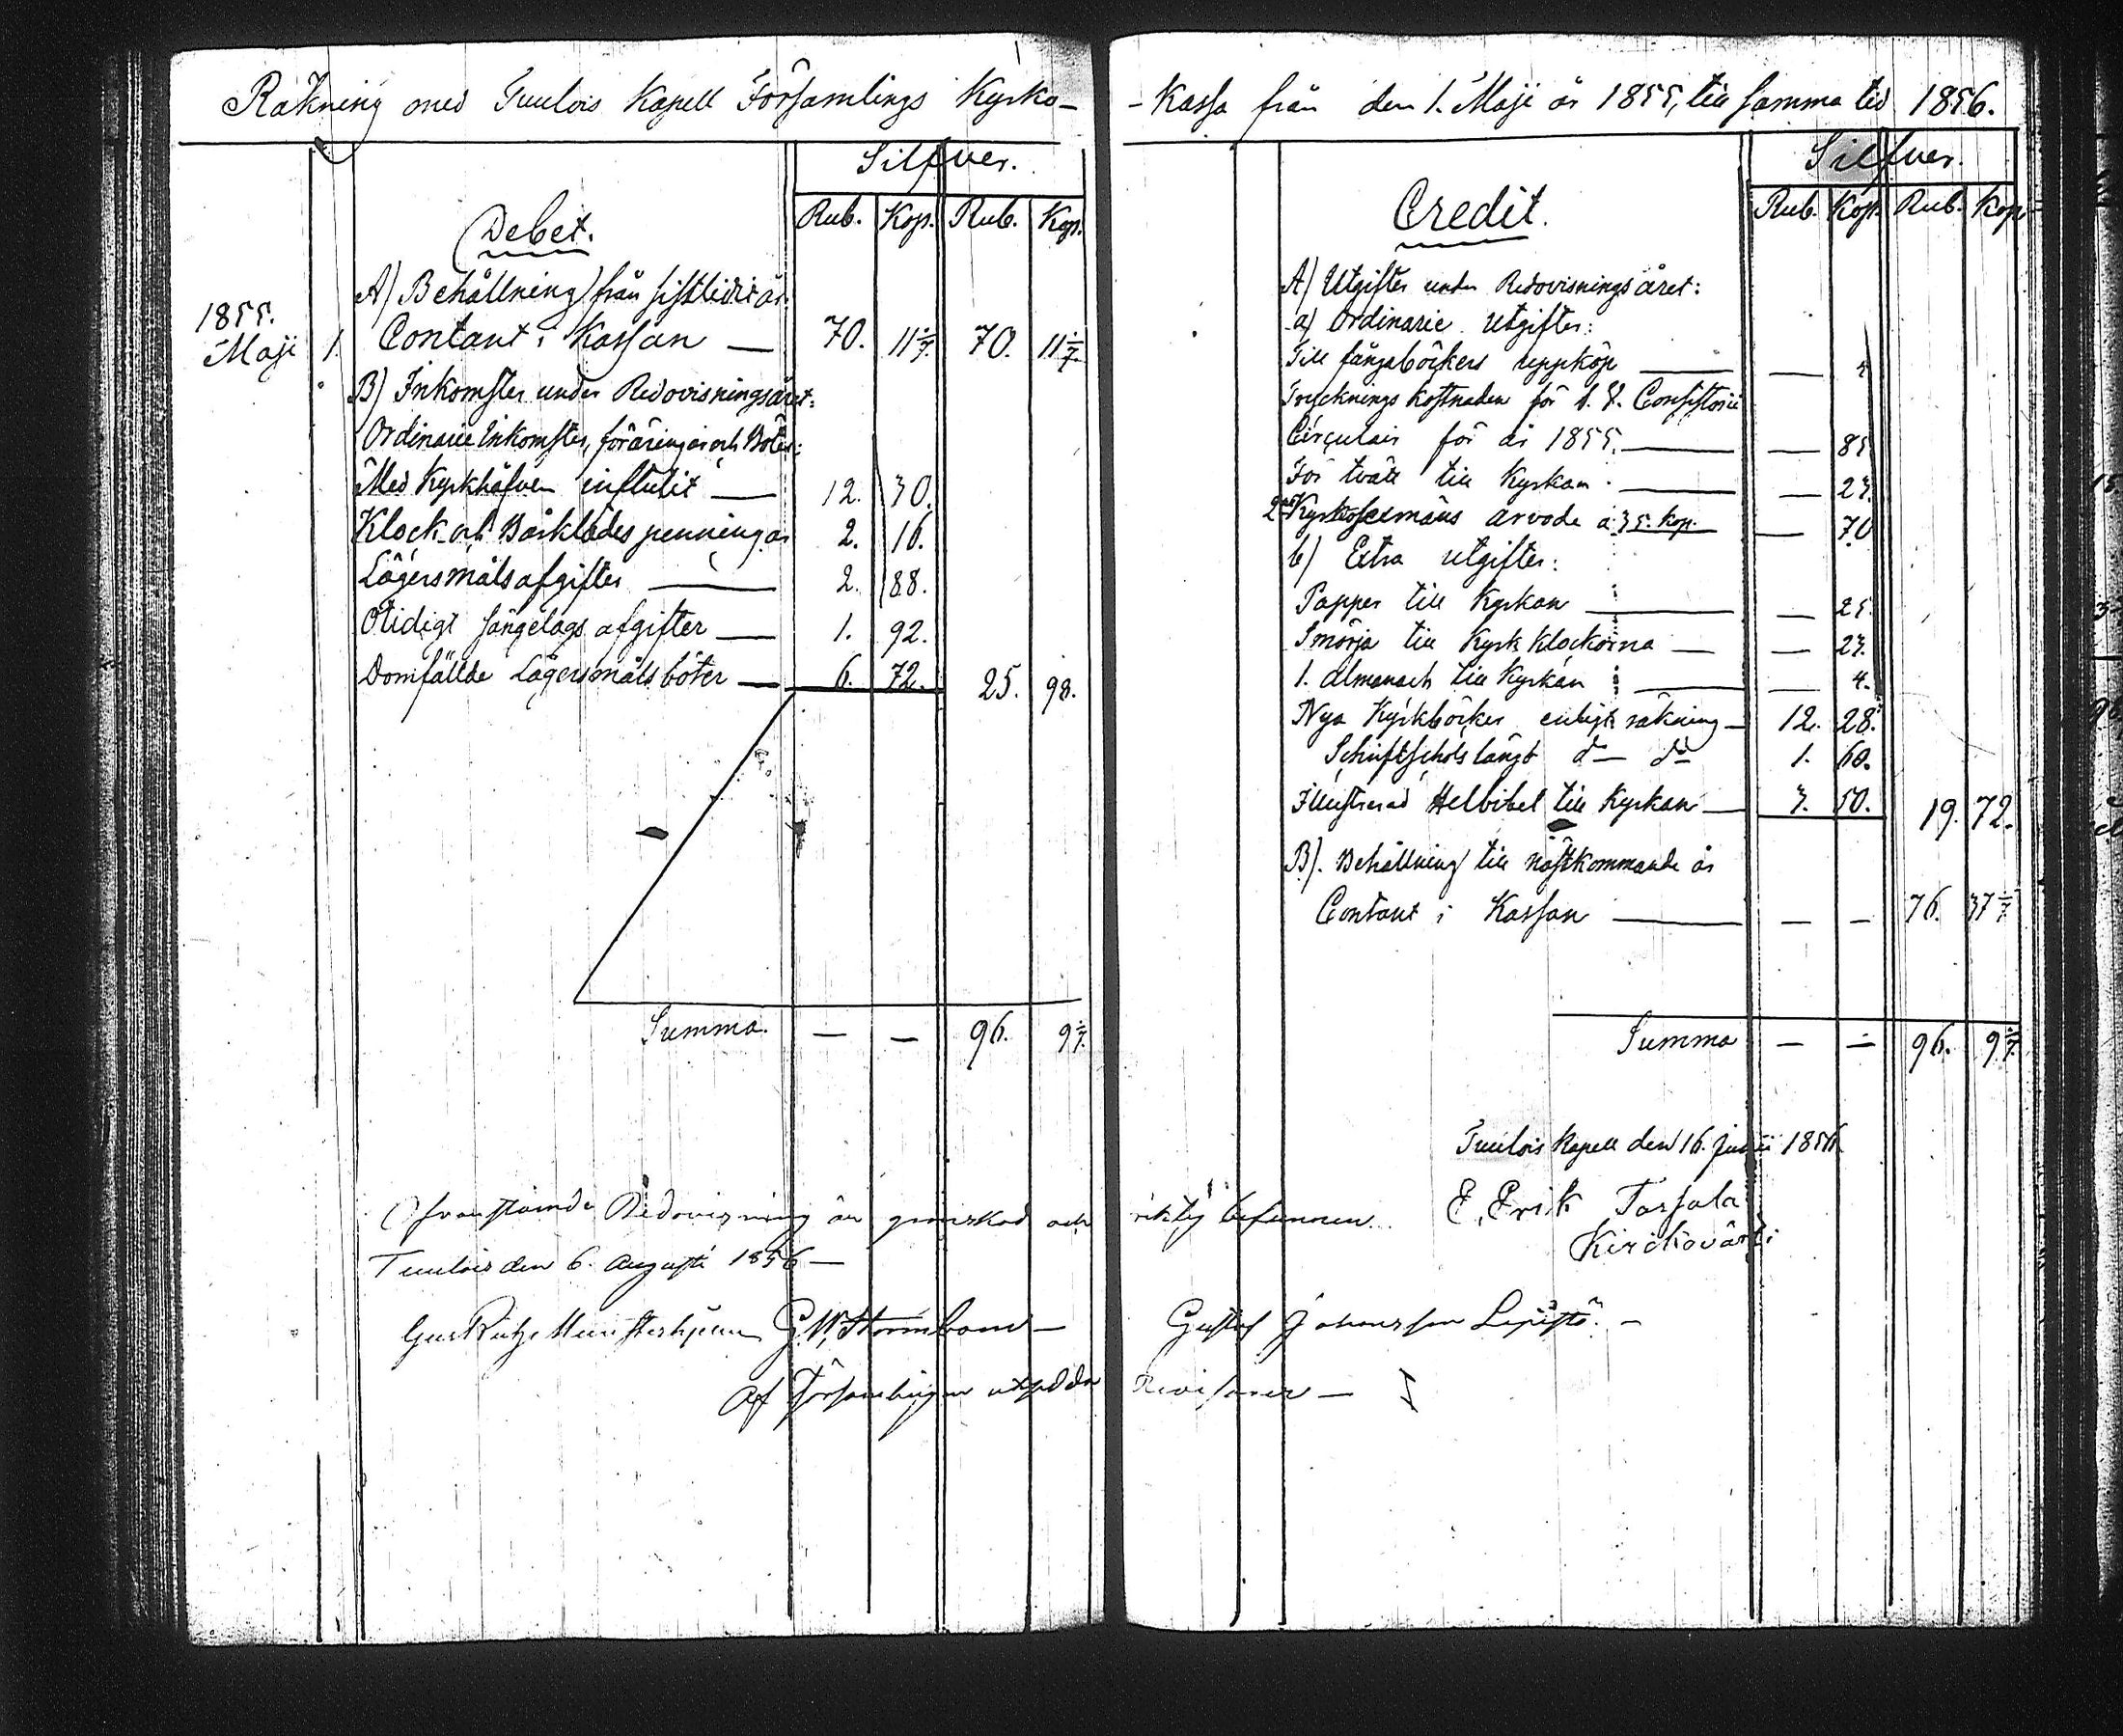 Räkning med Tuulois Kapell Församlings Kyrko-
-Kassa från den 1. Maji år 1855, till samma tid 1856.
Silfver.
Debet.
Rub. Kop. Rub. Kop.
A) Behållning från sistlidit år.
1855.
Maji 1. Contant i Kassan — 70. 11 70. 11
B) Inkomster under Redovisningsåret:
Ordinarie Inkomster, föräringar och Böter:
Med Kyrkhåfven influtit — 12. 30.
Klock och Bårklädes penningar 2. 16.
Lägersmålsafgifter — 2. 88.
Otidigt sängelags afgifter — 1. 92.
Domfällde Lägersmåls böter — 6. 72. 25. 98.
Summa. — — 96. 9
Ofvanstående Redovisning är granskad och riktig befunnen.
Tuulois den 6. Augusti 1856 —
Munsterhjelm G. W. Stormbom —
Gustaf Johansson Lepistö. —
Af Församlingen utsedde Revisorer —
Silfver.
Credit.
Rub. Kop. Rub. Kop.
A) Utgifter under Redovisningsåret:
a) Ordinarie utgifter:
Till fångaböckers uppköp — — 4
Trycknings kostnaden för Consistorii
Circulair för år 1855. — — 85
För tvätt till Kyrkan — — 23.
2 arvode a 35. kop. — 70
b) Extra utgifter:
Papper till Kyrkan — — 25
Smörja till Kyrk klockorna — — 23.
1. almanach till Kyrkan — — 4.
Nya Kyrkböcker enligt räkning — 12. 28.
Schriftschols längd d:o d:o 1. 60.
Illustrerad Helbibel till Kyrkan — 3. 50. 19. 72.
B). Behållning till nästkommande år
Contant i Kassan — — — 76. 37
Summa — — 96. 9
Tuulois Kapell den 16. Junii 1856.
E. Erik Torsala
Kirckovärti